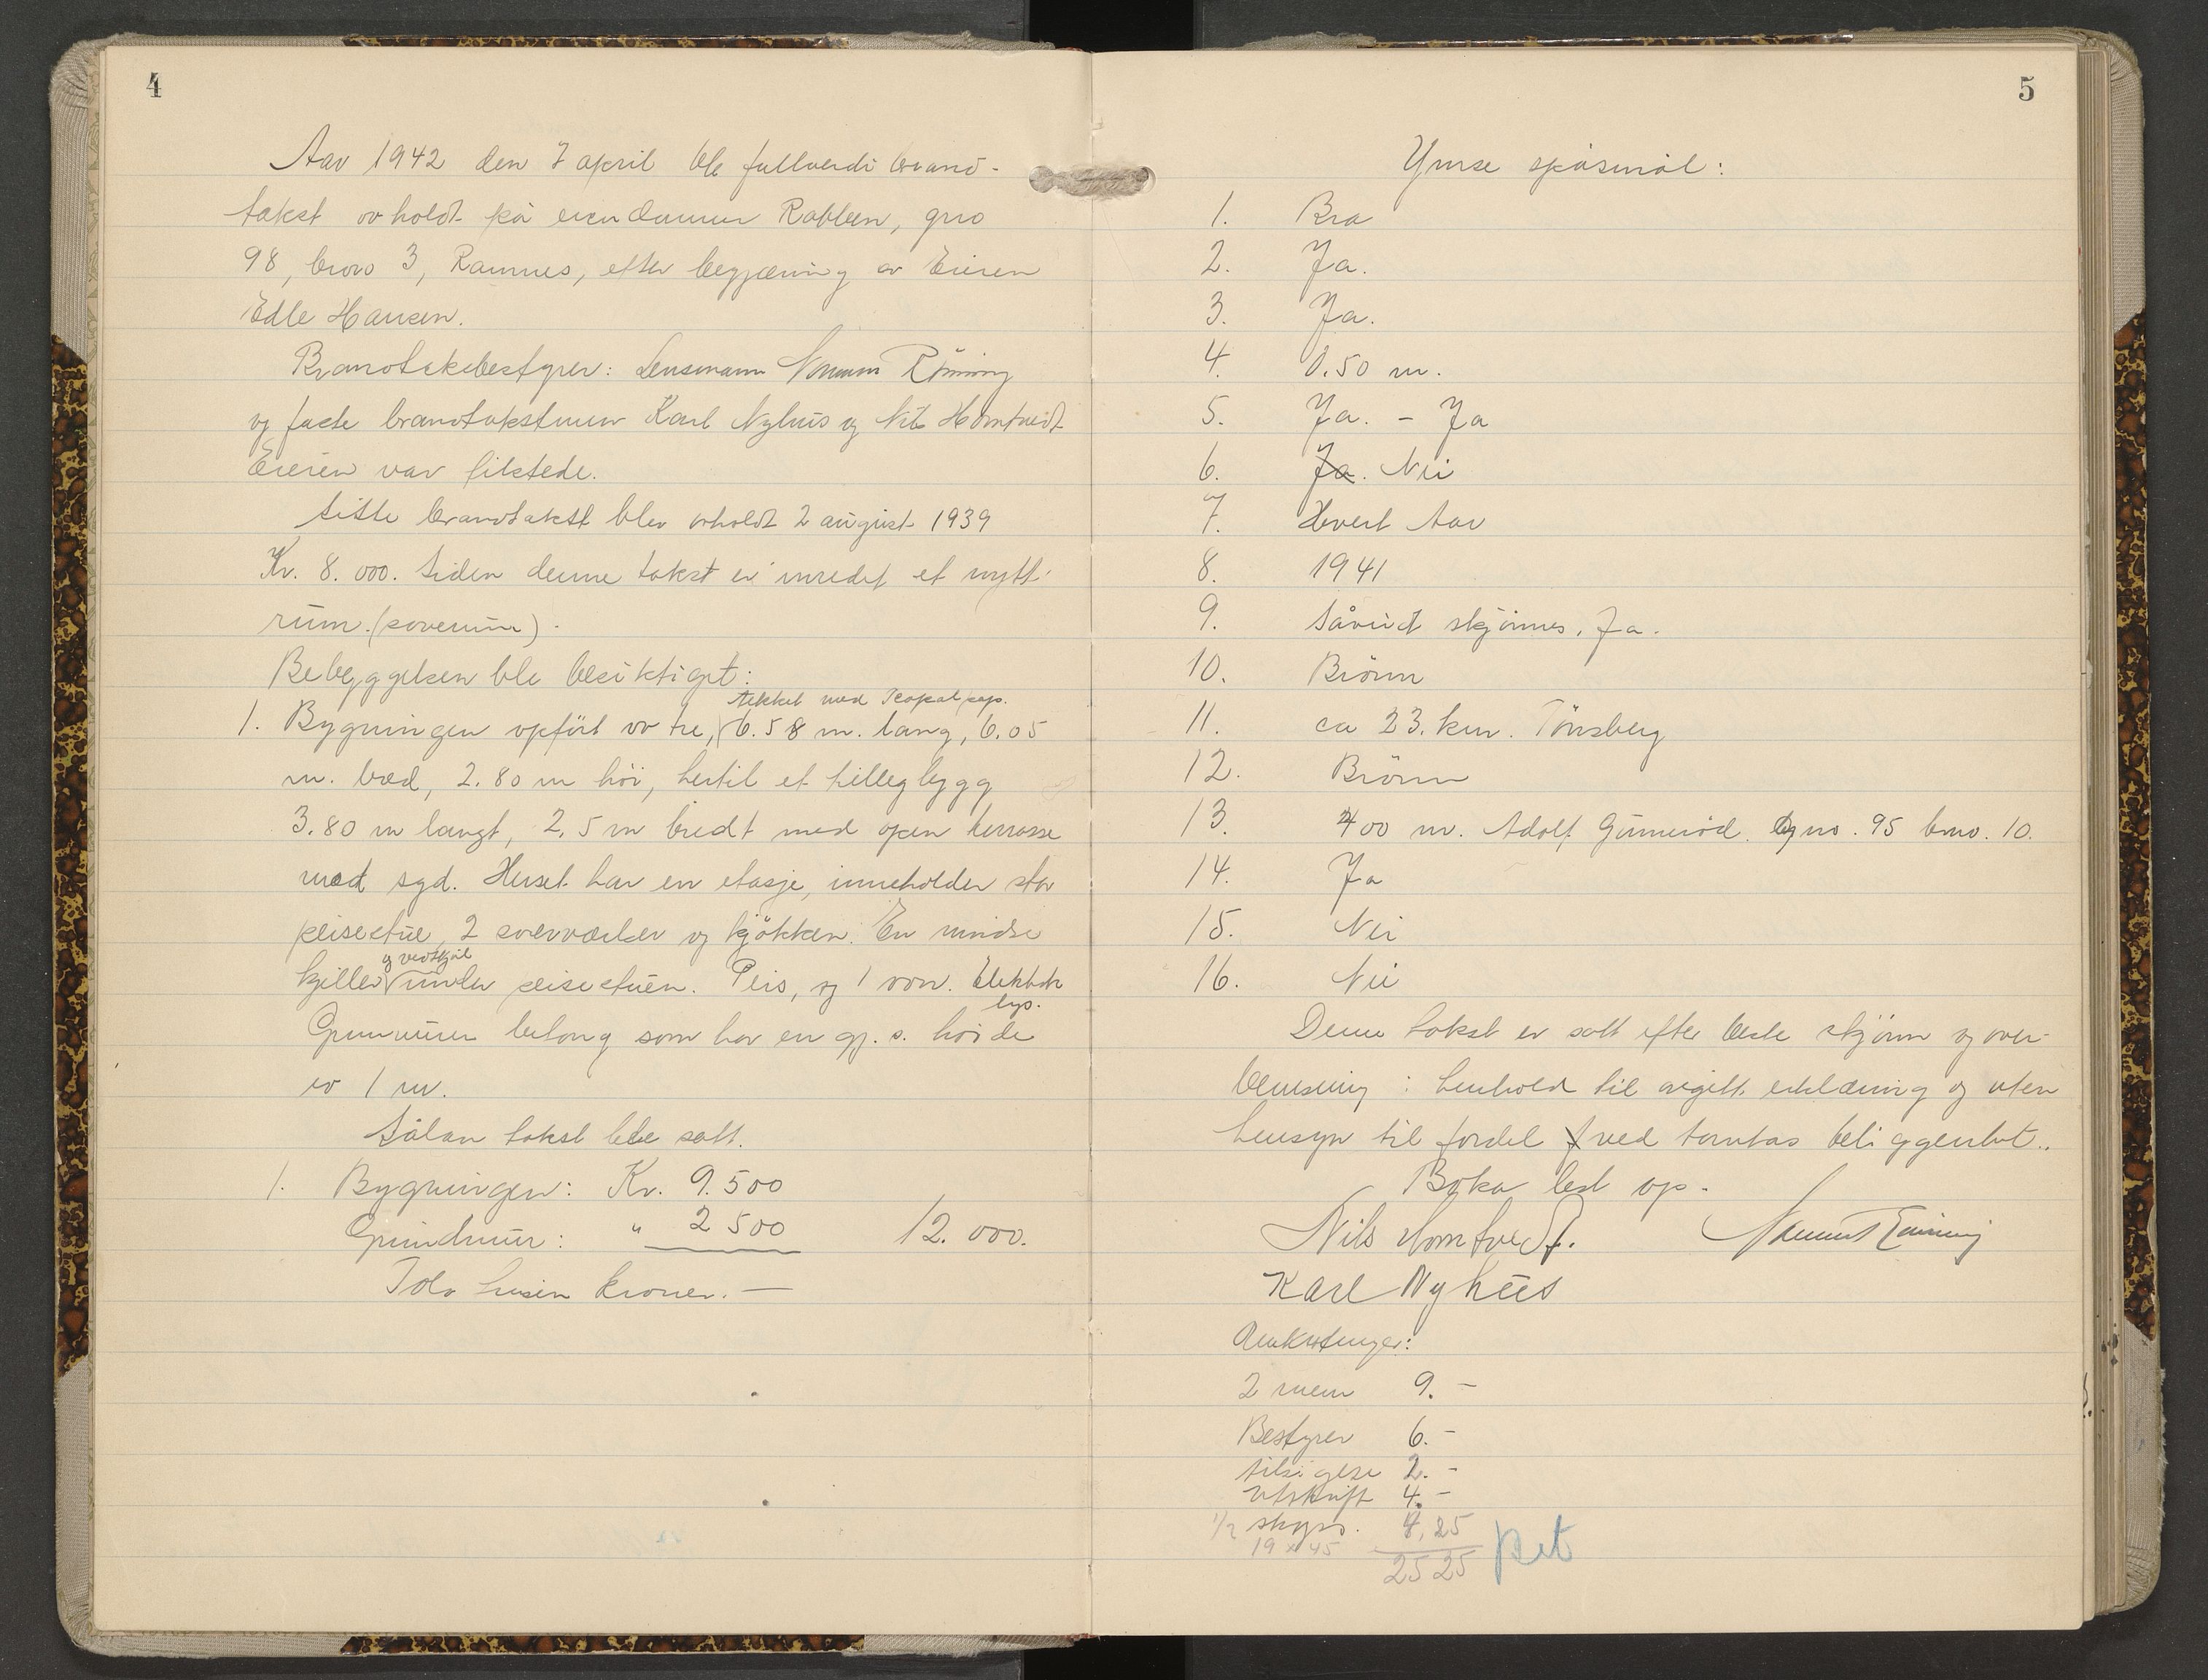 4
Aar 1942 den 7 april ble fullverdi brand-
takst avholdt på eiendommen Rabben, gno
98, brno 3, Ramnes, efter begjæring av Eieren
Edle Hansen.
Brandtakstbestyrer: Lensmann Rönning
og faste brandtakstmenn Karl Nyhus og Nils Homtvedt
Eieren var tilstede.
Siste brandtakst blev avholdt 2 august 1939
Kr. 8.000. Siden denne takst er inredet et nytt
rum. (soverum).
Bebyggelsen ble besiktiget:
tekket med Icopal pap.
1. Bygningen opfört av tre, 6.58 m. lang, 6.05
m. bred, 2.80 m höi, hertil et tillegbygg
3.80 m langt, 2.5 m bredt med open terrasse
mot syd. Huset har en etasje, inneholder stor
peisestue, 2 soverværelser og kjökken. En mindre
og vedskjul
kjeller under peisestuen. Peis, og 1 ovn. Elektrk
lys.
Grunmuren betong som har en gj. s. höide
av 1 m.
Sålan takst ble satt.
1. Bygningen: Kr. 9.500
Grundmur: " 2 500 12.000.
Tolv tusen kroner. —
5
Ymse spåsmål:
1. Bra
2. Ja.
3. Ja.
4. 0.50 m.
5. Ja. - Ja
6. Ja. Nei
7. Hvert Aar
8. 1941
9. Såvidt skjönnes, Ja.
10. Brönn
11. ca 23. km. Tönsberg
12. Brönn
13. 400 m. Adolf Gunneröd. gno. 95 brno. 10.
14. Ja
15. Nei
16. Nei
Denne takst er satt efter beste skjönn og over-
bevisning i henhold til avgitt erklæring og uten
hensyn til fordel ved tomtas beliggenhet.
Boka lest op.
Nils Homtvedt. Rönning
Karl Nyhus
Omkostninger:
2 menn 9. -
Bestyrer 6. -
tilsigelse 2. -
Utskrift 4. -
1/2 skyss. 4,25
19 x 45
25 25